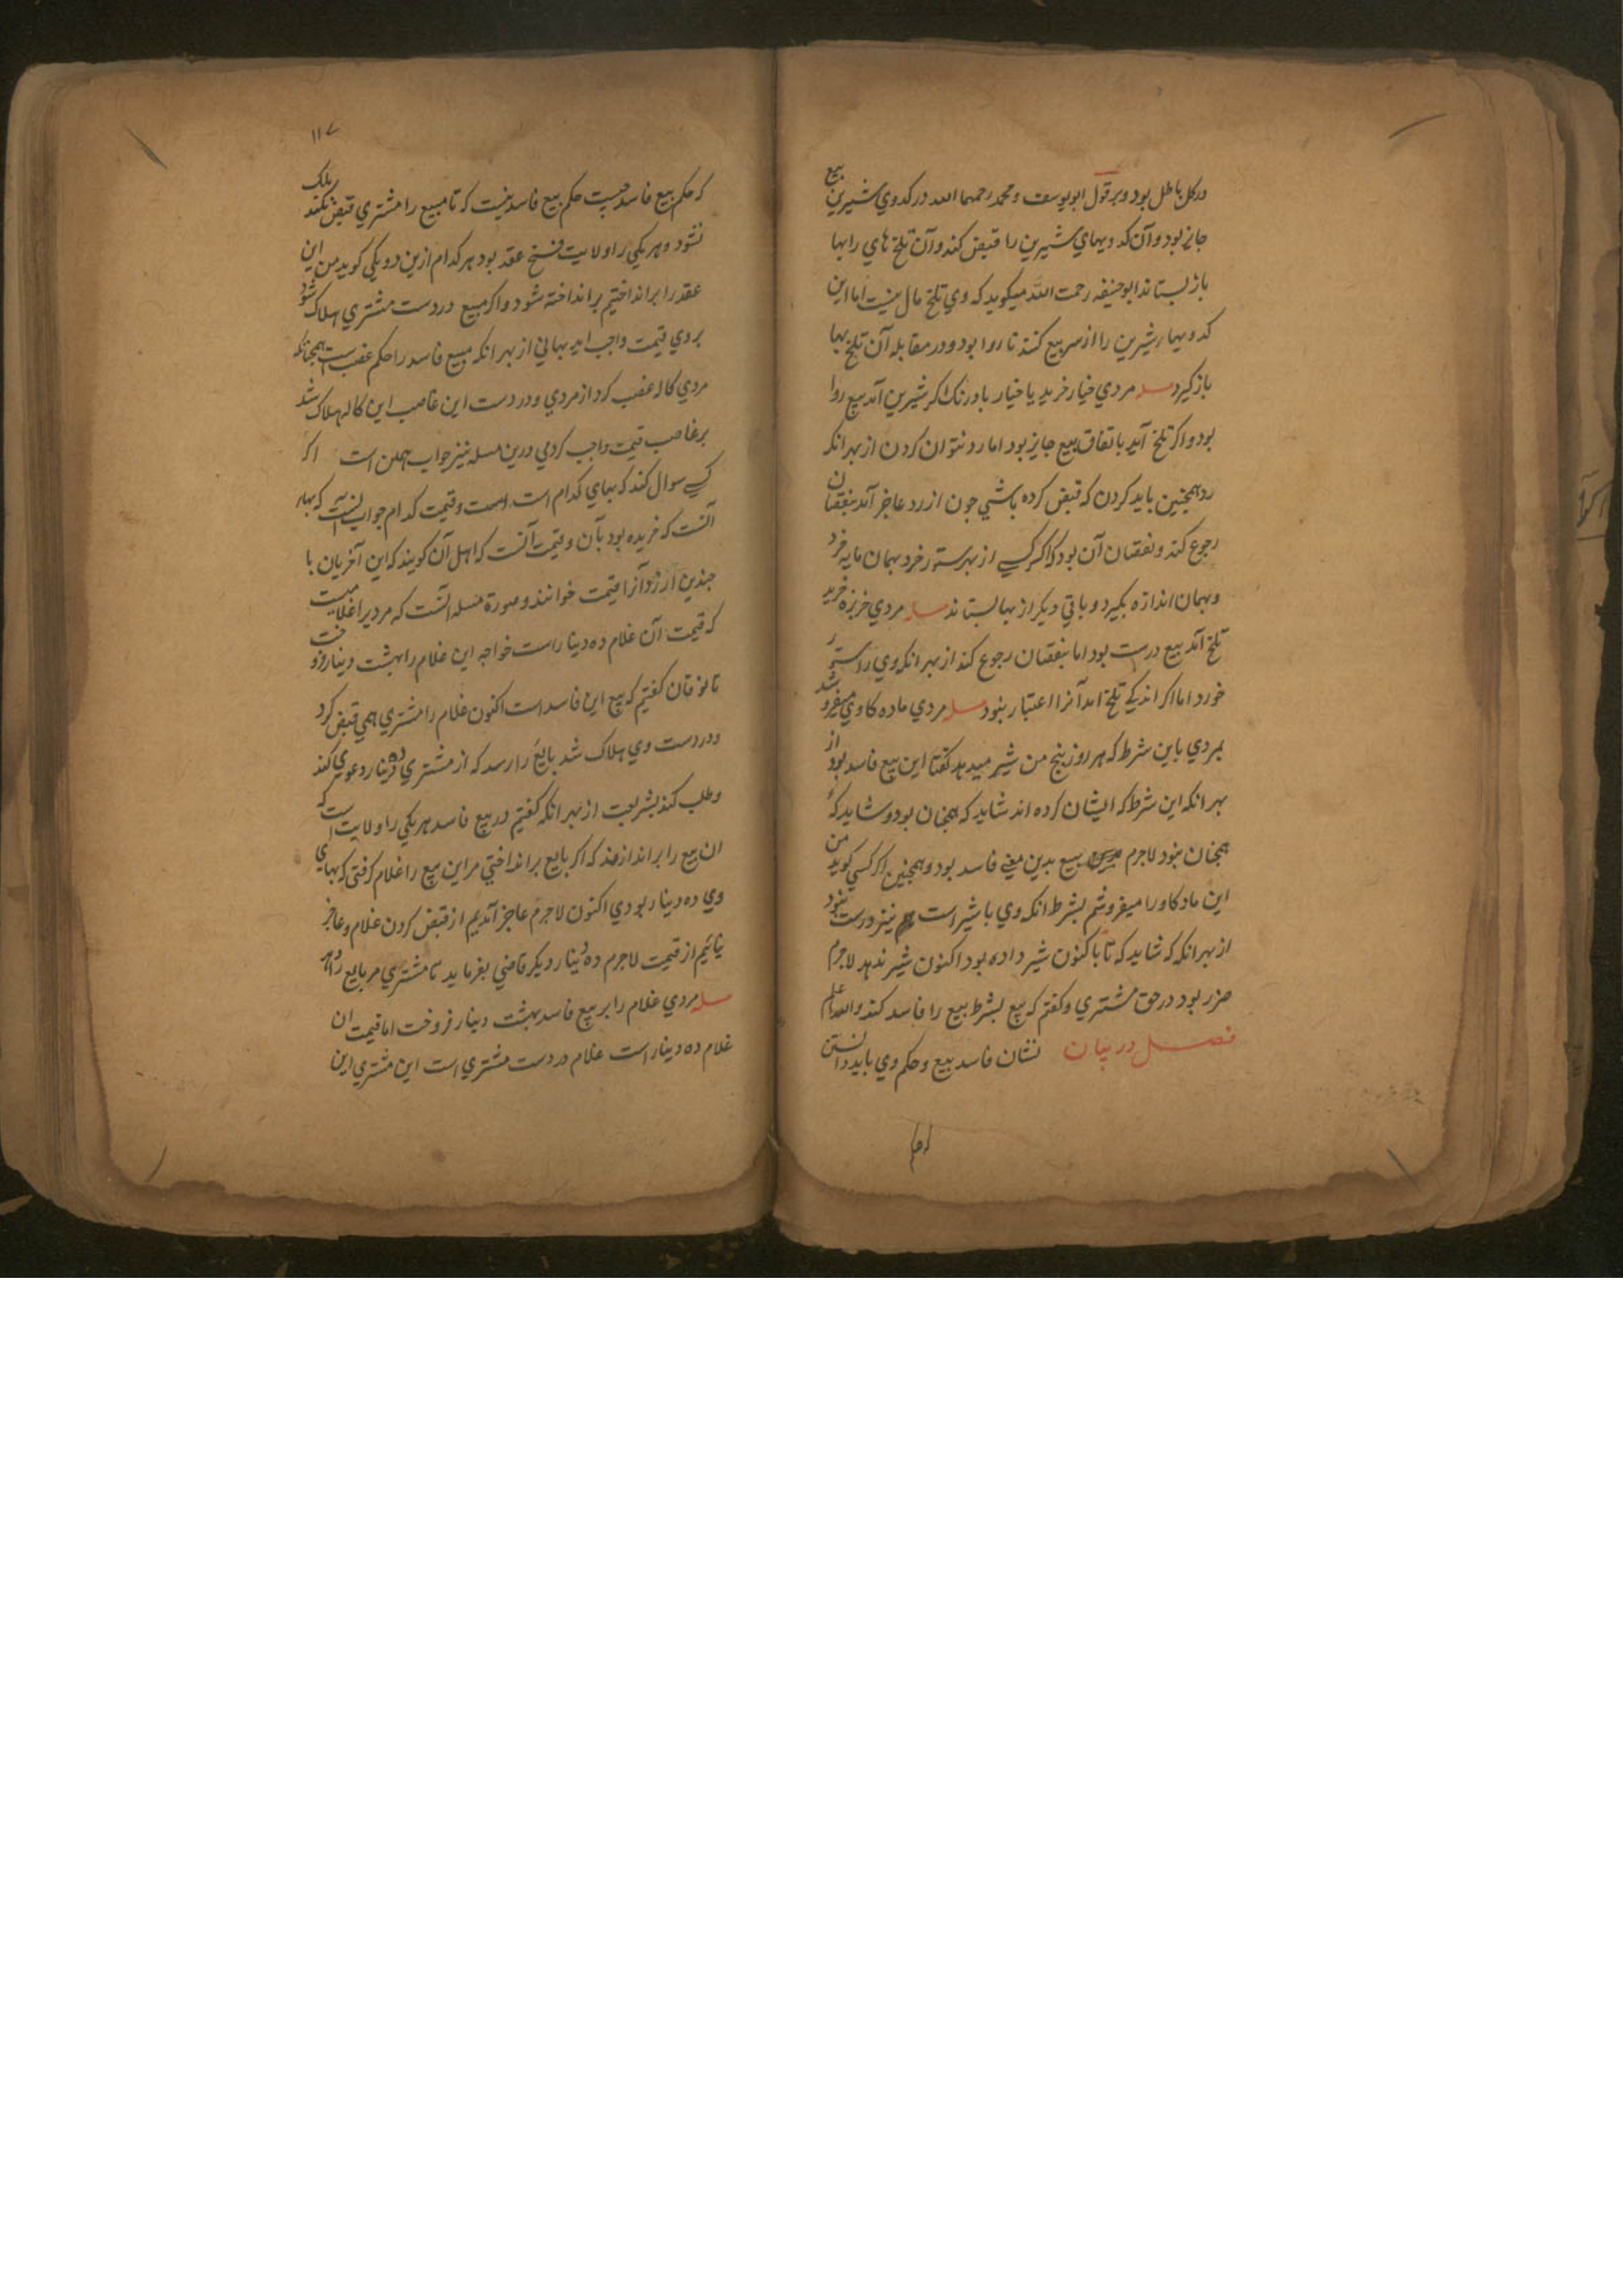 درکل باطل بود وبر قول ابویوسف ومحمد رحمهما الله در کدوي شیرین بیع
جایز بود وآن کدویهاي شیرین را قبض کند وآن تلخ هاي را بها
باز بستاند ابوحنیفه رحمت الله میکوید که وي تلخ مال نیست اما این
کدویهاء شیرین را از سر بیع کنند تا روا بود ودر مقابله آن تلخ بها
باز کیرد مسله مردي خیار خرید یا خیار بادرنک اکر شیرین آمد بیع روا
بود واکر تلخ آید باتفاق بیع جایز بود اما رد نتوان کردن از بهر انکه
رد همچنین باید کردن که قبض کرده باشي جون از رد عاجز آمد بنقصان
رجوع کند ونقصان آن بود که اکر کسي از بهر ستور خرد بهمان مایه خرد
وبهمان اندازه بکیرد وباقي دیکر از بها بستاند مسله مردي خربزه خرید
تلخ آمد بیع درست بود اما بنقصان رجوع کند از بهر انکه وي را ستور
خورد اما اکر اندکي تلخ امد آنرا اعتبار نبود مسله مردي ماده کاوي میفروشد
بمردي باین شرط که هر روز پنج من شیر میدهد کفتا این بیع فاسد بود از
بهر انکه این شرط که ایشان کرده اند شاید که همجنان بود وشاید که
همجنان نبود لاجرم بیع بدین معني فاسد بود وهمجنین اکر کسي کوید من
این ماد کاو را میفروشم بشرط انکه وي با شیر است نیز درست نبود
از بهر انکه که شاید که تا باکنون شیر داده بود اکنون شیر ندهد لاجرم
ضرر بود در حق مشتري وکفتم که بیع بشرط بیع را فاسد کند والله اعلم
فصل در بیان نشان فاسد بیع وحکم وي باید دانستن
۱۱۷
که حکم بیع فاسد چیست حکم بیع فاسد اینست که تا مبیع را مشتري قبض نکند ملک
نشود وهر یکي را ولایت فسخ عقد بود هر کدام ازین دو یکي کوید من این
عقد را برانداختیم برانداخته شود واکر مبیع در دست مشتري هلاک شود
بر وي قیمت واجب اید بهاني از بهر انکه مبیع فاسد را حکم غصب است همچنانکه
مردي کاله غصب کرد از مردي ودر دست این غاصب این کاله هلاک شد
بر غاصب قیمت واجب کردمي درین مسله نیز جواب همین است اکر
کسي سوال کند که بهاي کدام است وقیمت کدام جواب آنست که بهاء
آنست که خریده بود بآن وقیمت آنست که اهل آن کویند که این آخریان با
چندین ارزد آنرا قیمت خوانند وصورة مسله آنست که مردیرا غلامیست
که قیمت آن غلام ده دینار است خواجه این غلام را بهشت دینار فروخت
کفتیم که بیع این فاسد است اکنون غلام را مشتري همي قبض کرد
ودر دست وي هلاک شد بایع را رسد که از مشتري ده دینار دعوي کند
وطلب کند بشریعت از بهر انکه کفتیم در بیع فاسد هر یکي را ولایت است که
ان بیع را براندازند که اکر بایع برانداختي مر این بیع را غلام کرفتي که بهاي
وي ده دینار بودي اکنون لاجرم عاجز آمدیم از قبض کردن غلام وعاجز
نیائیم از قیمت لاجرم ده دینار دیکر قاضي بفرماید تا مشتري مر بایع را دهد
مسله مردي غلام را بر بیع فاسد بهشت دینار فروخت اما قیمت ان
غلام ده دینار است غلام در دست مشتري است این مشتري این